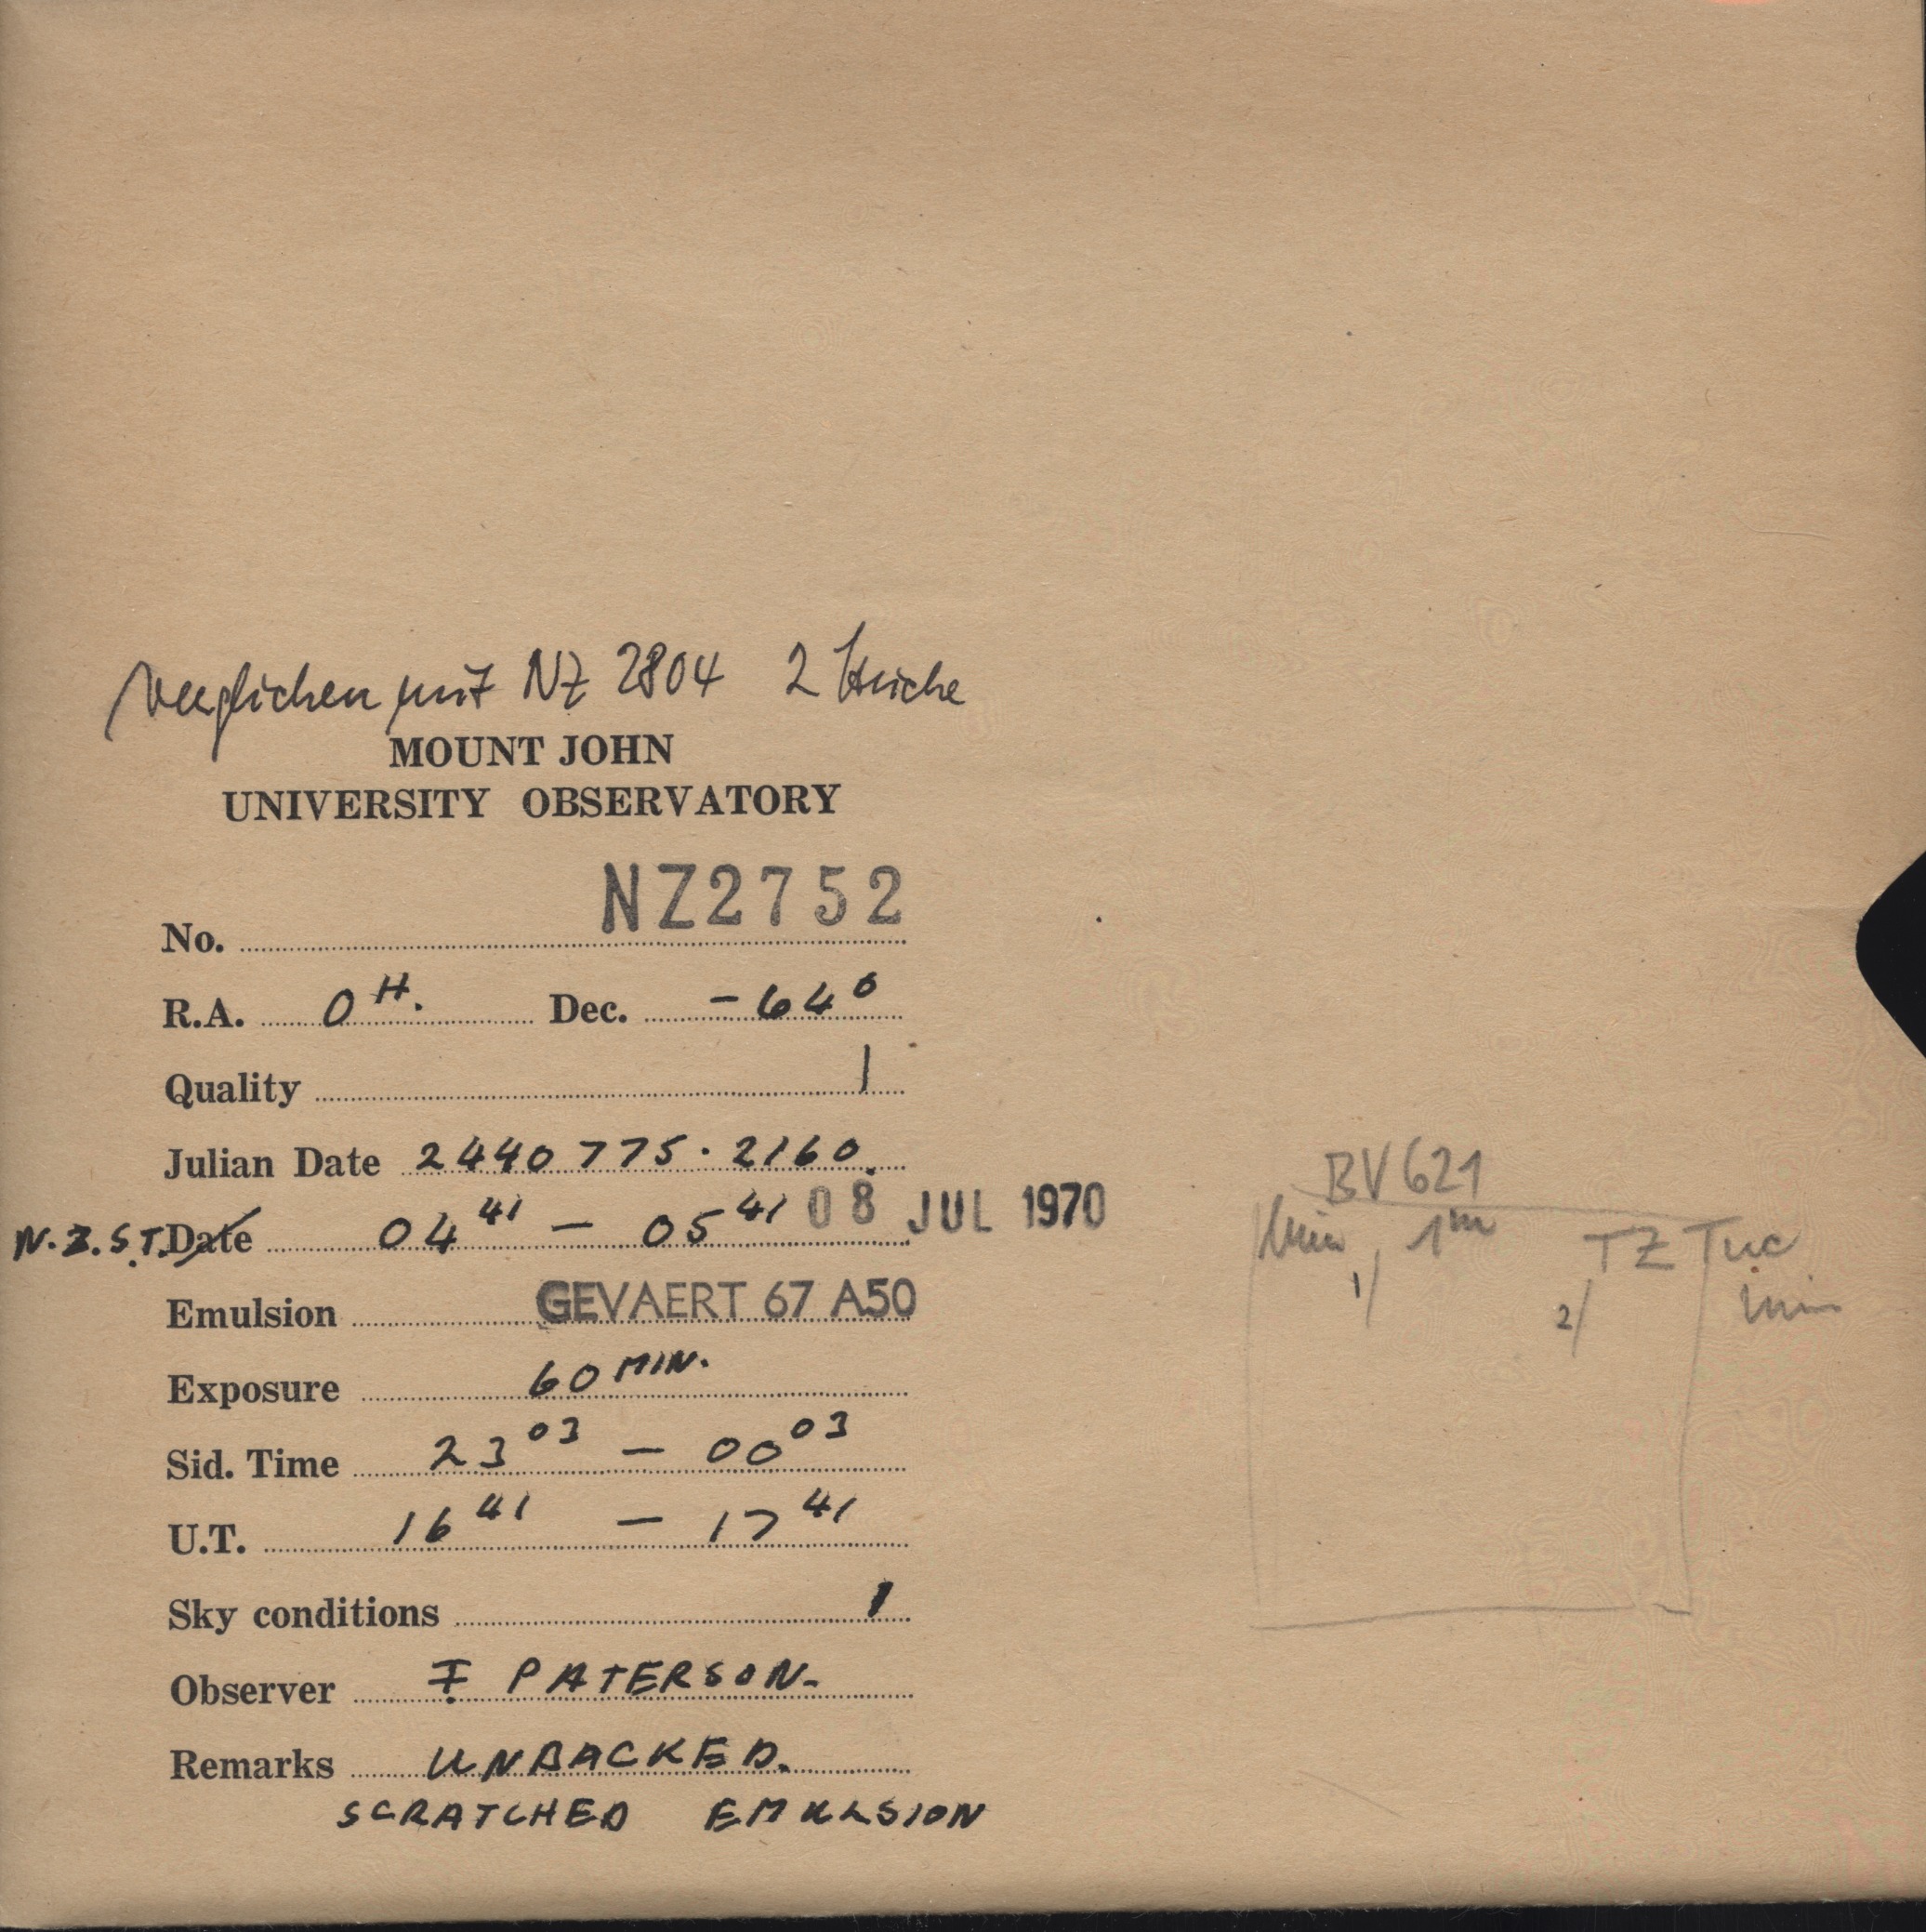 verglichen mit NZ 2804 2 Striche
MOUNT JOHN
UNIVERSITY OBSERVATORY
No. NZ2752
R.A. 0 H. Dec. -64°
Quality 1
Julian Date 2440 775.2160
N.Z.S.T. Date 04 41 — 05 41 08 JUL 1970
Emulsion GEVAERT 67 A50
Exposure 60 MIN.
Sid. Time 23 03 — 00 03
U.T. 16 41 — 17 41
Sky conditions 1
Observer I PATERSON.
Remarks UNBACKED.
SCRATCHED EMULSION
BV 621
Min, 1m
1/
TZ Tuc
2/
Min